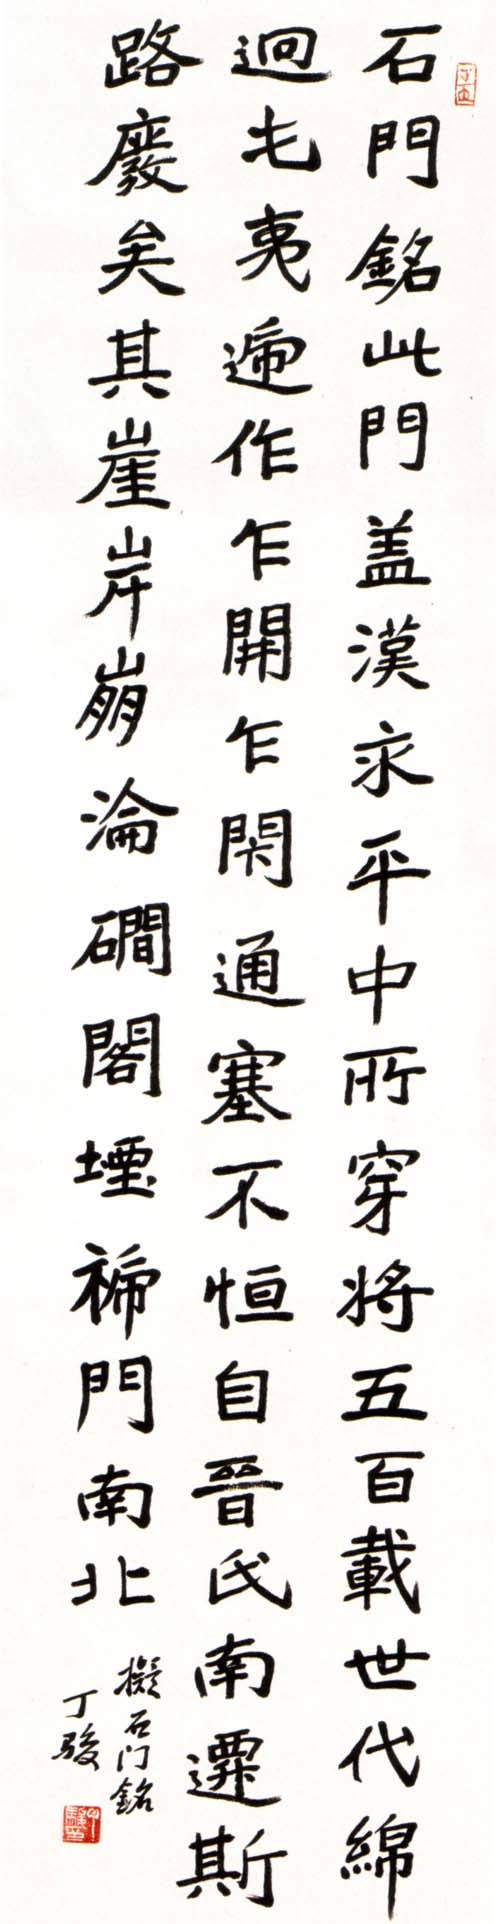 石門銘此門盖漢永平中所穿将五百載世代綿
迴屯夷遞作乍開乍閇通塞不恒自晉氏南遷斯
路廢矣其崖岸崩淪磵閣堙褫門南北
擬石门銘
丁骏